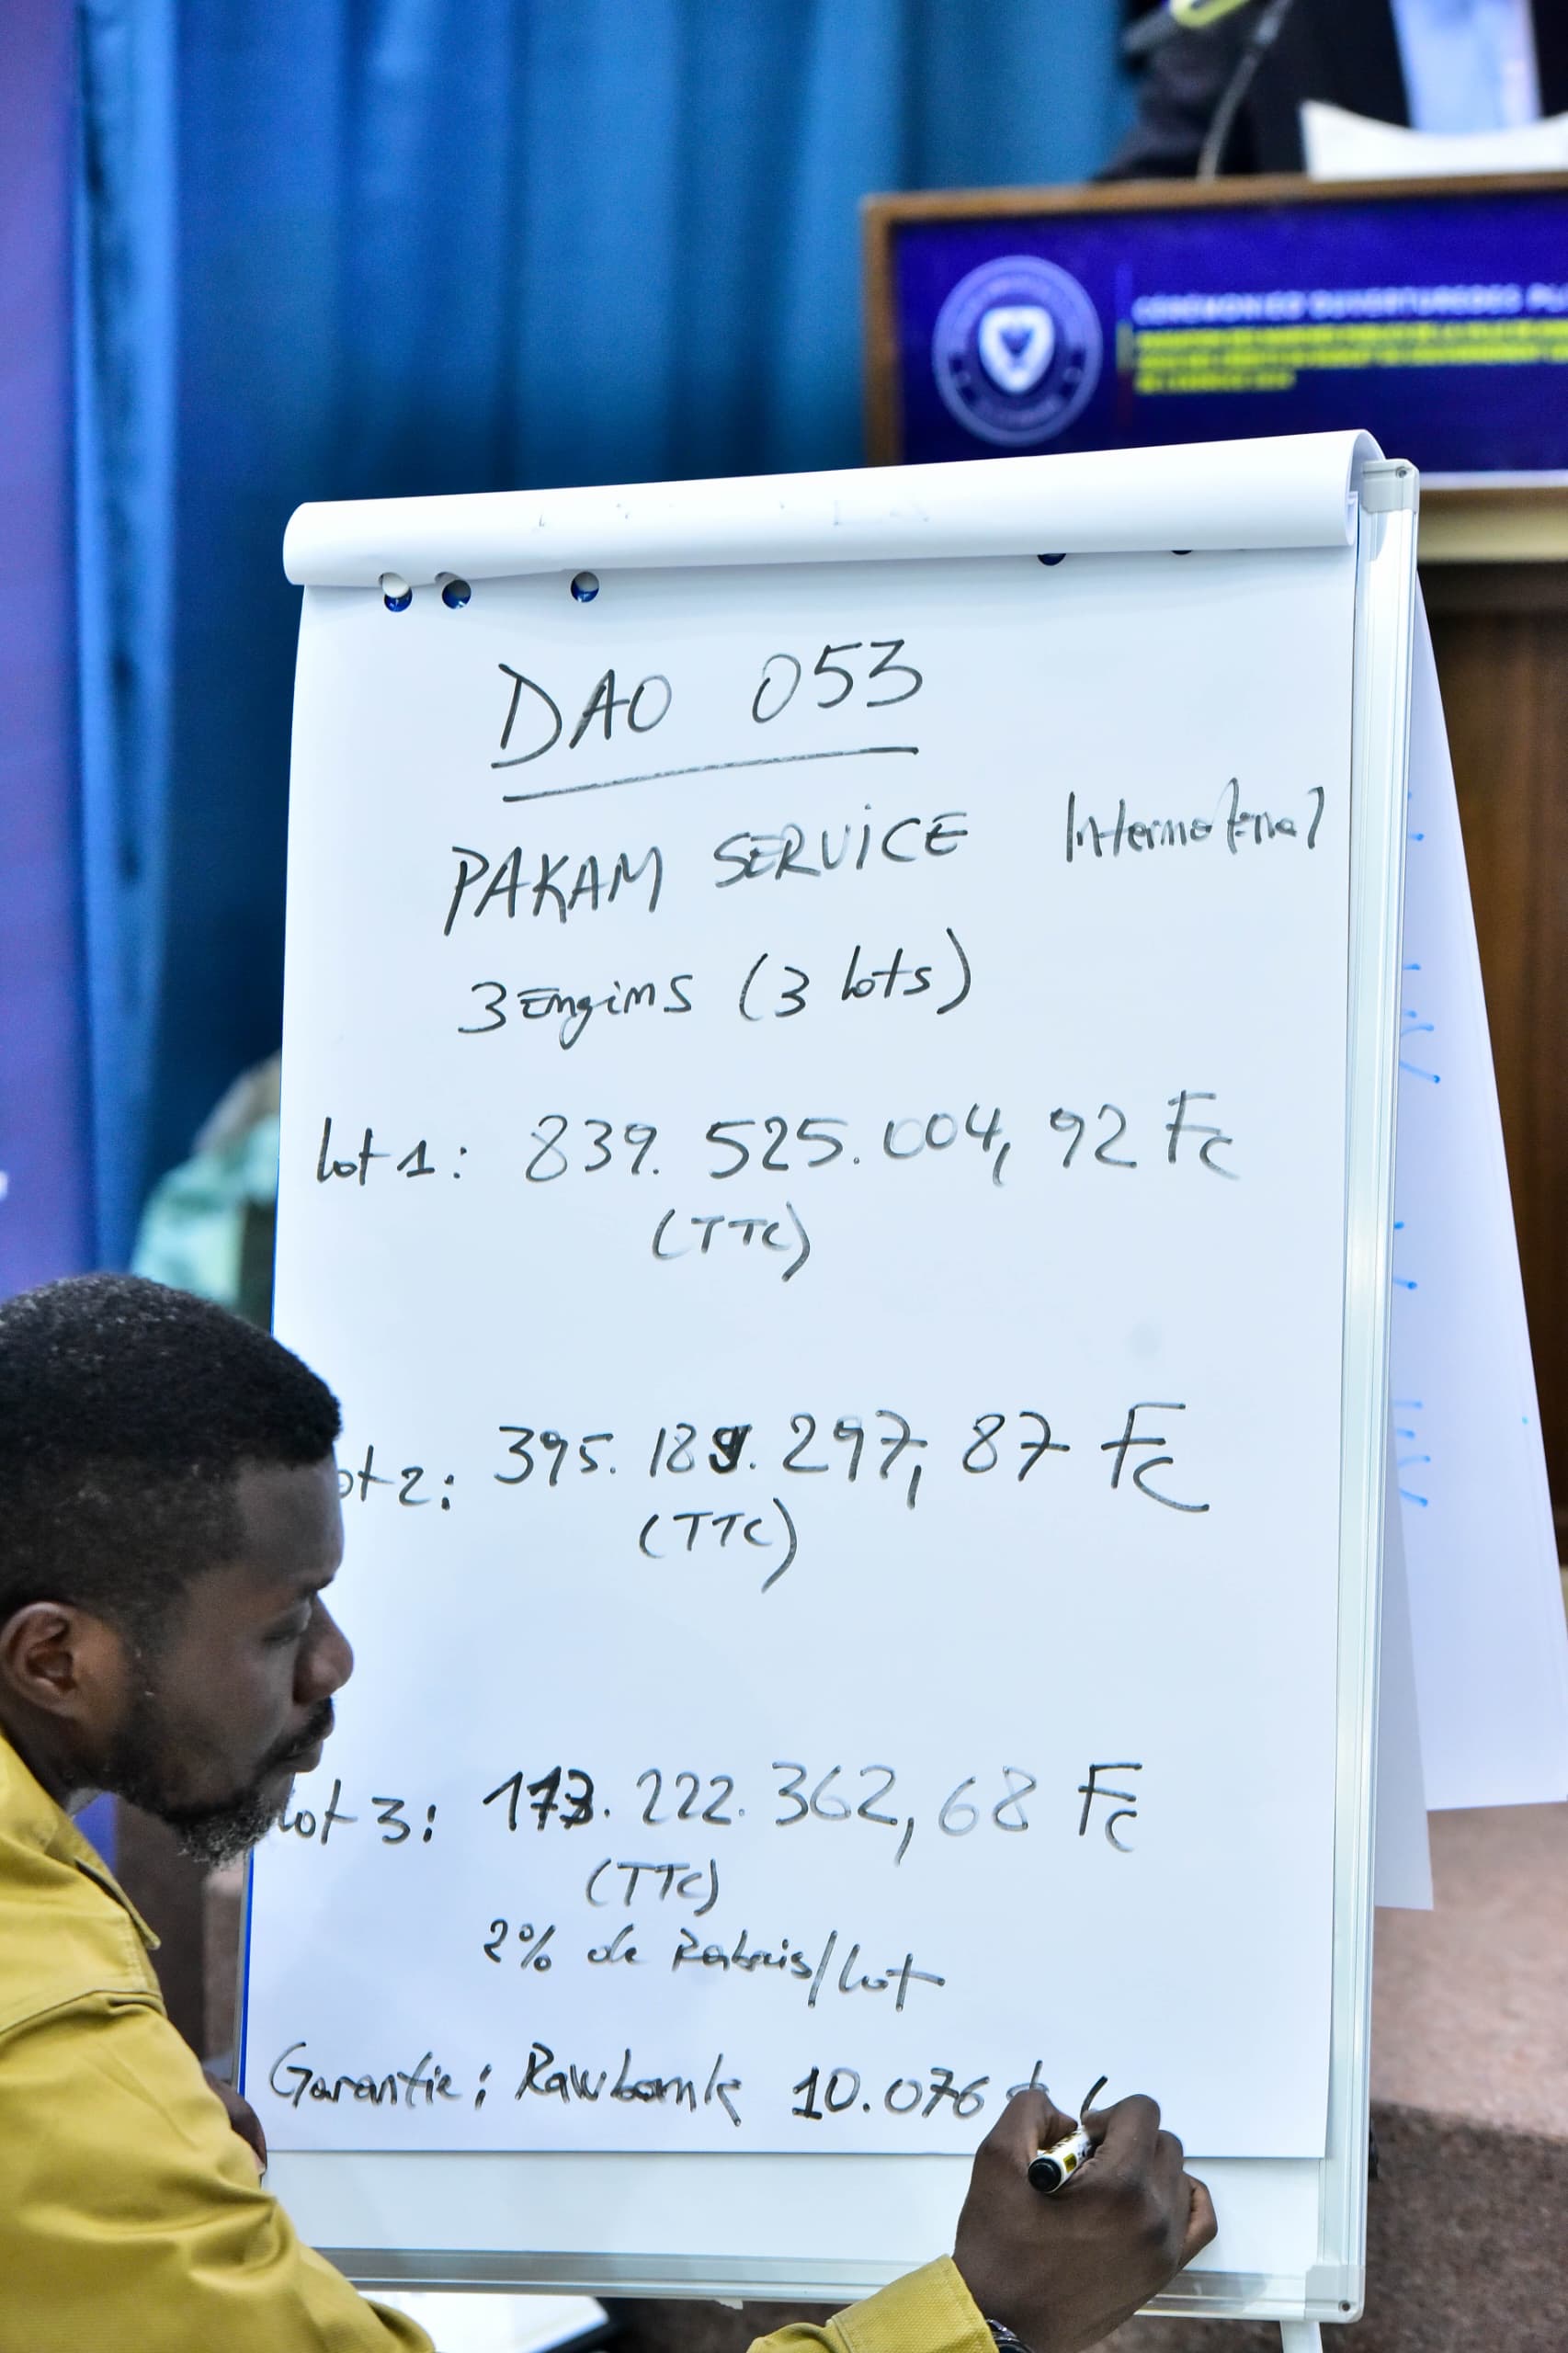 CÉRÉMONIE D'OUVERTURE DES
DAO 053
PAKAM SERVICE International
3 Engins (3 lots)
lot 1: 839.525.004,92 Fc
(TTC)
ot 2: 395.189.297,87 Fc
(TTC)
lot 3: 173.222.362,68 Fc
(TTC)
2% de Rabais/lot
Garantie: Rawbank 10.076